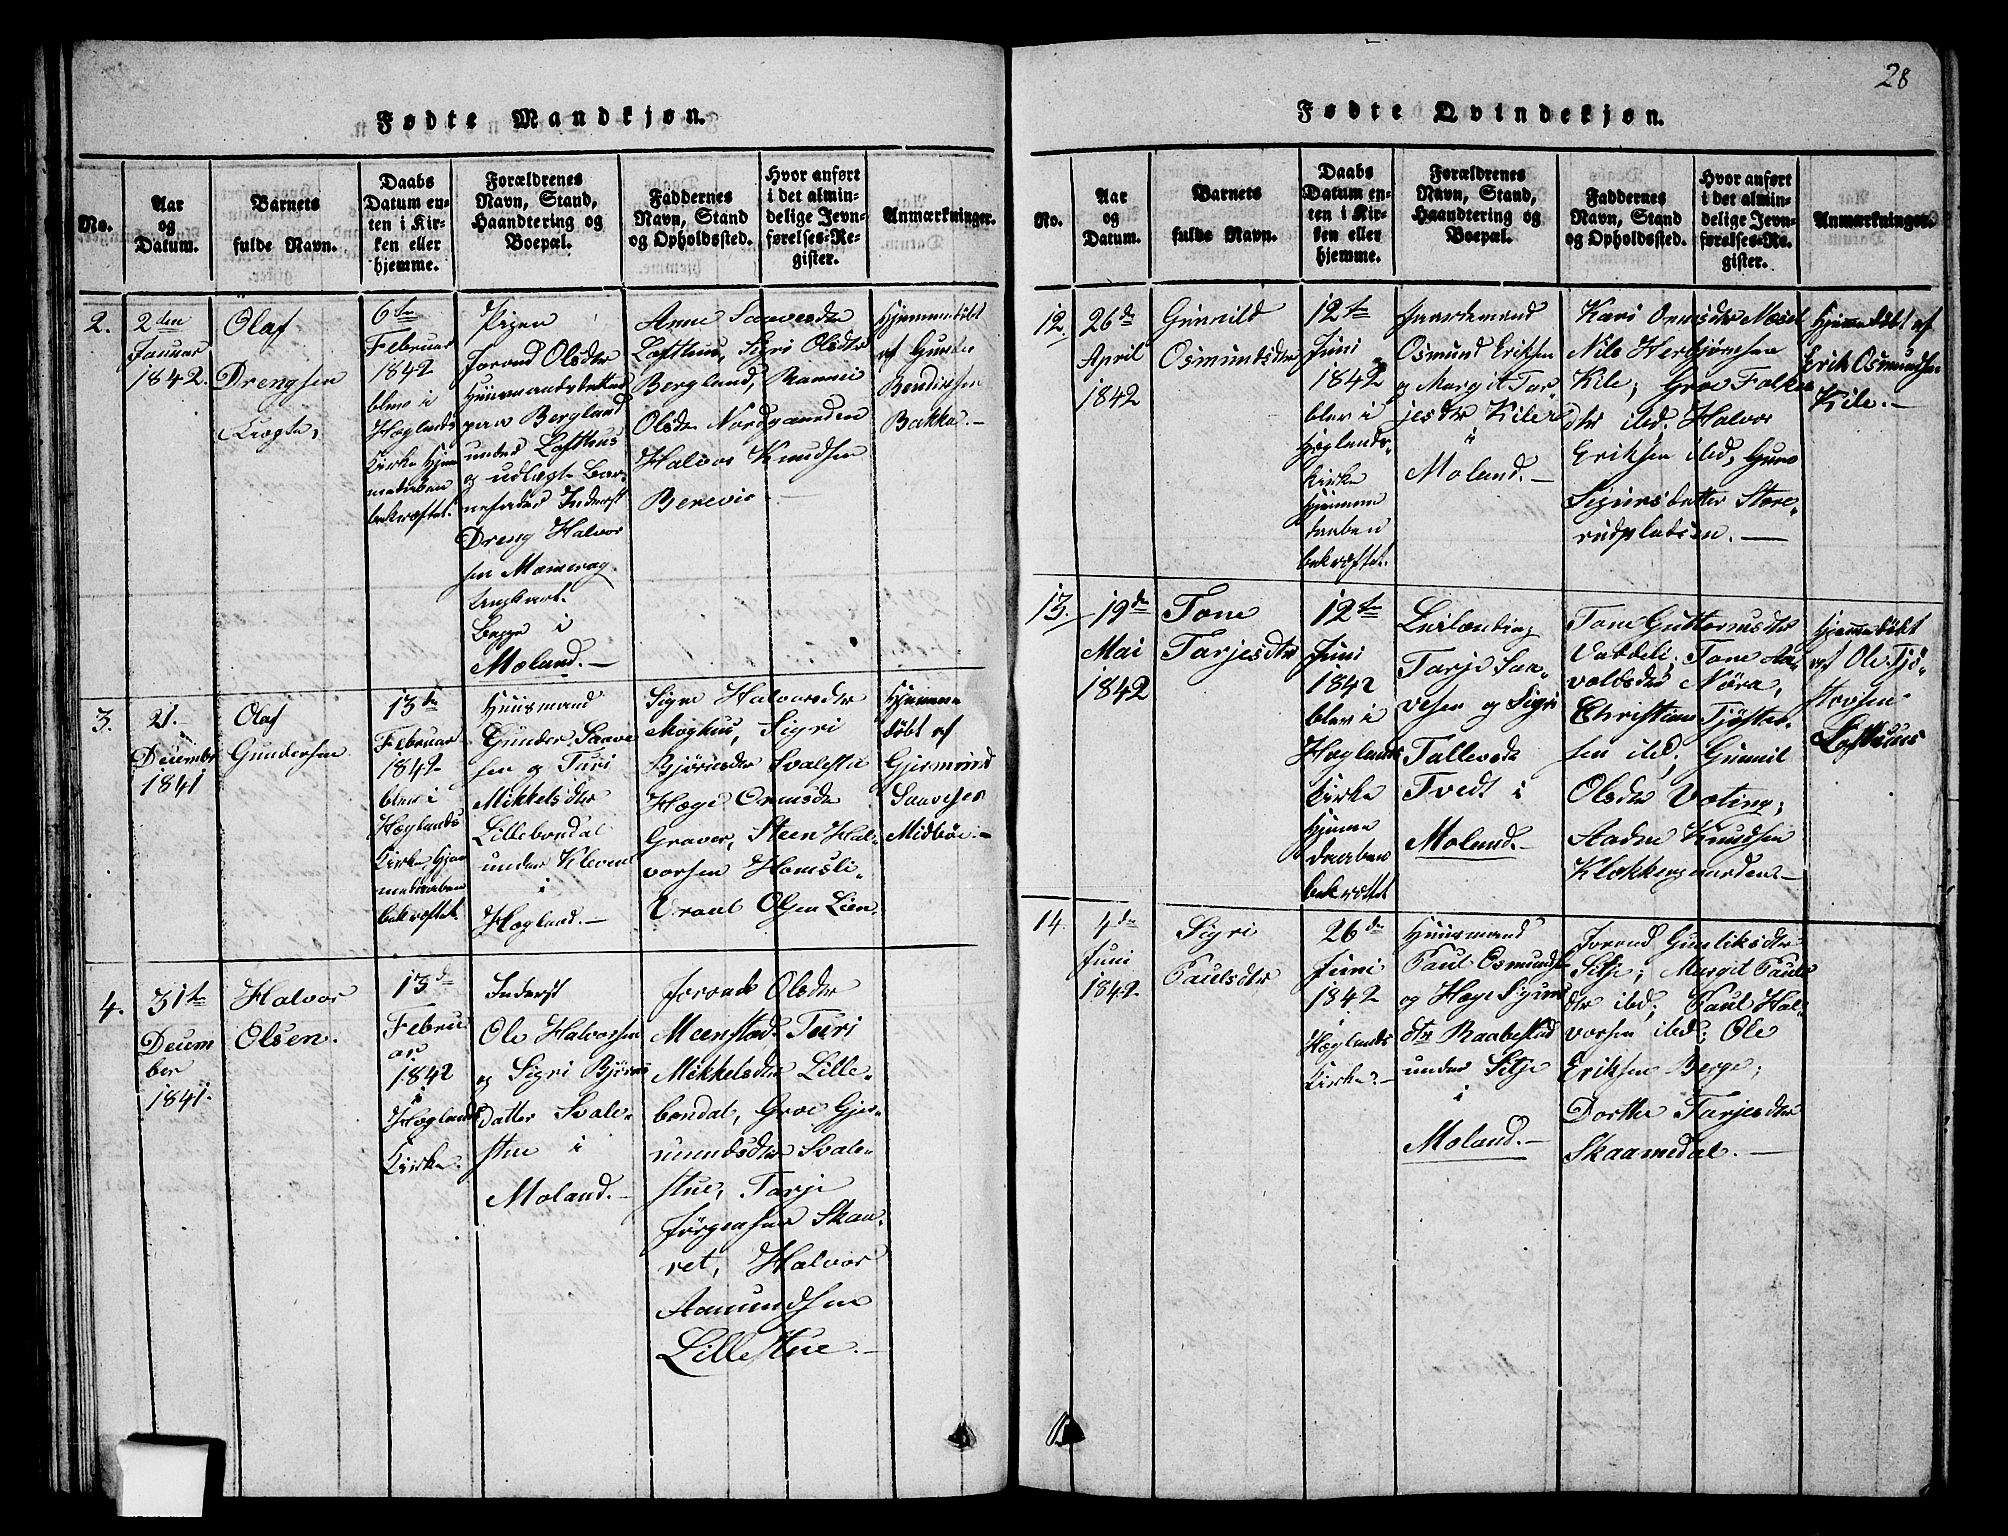 28
Fødte Mandkjøn.
No.
Aar
og
Datum.
Barnets
fulde Navn.
Daabs
Datum en-
ten i Kir-
ken eller
hjemme.
Forældrenes
Navn, Stand,
Haandtering og
Boepæl.
Faddernes
Navn, Stand
og Opholdssted.
Hvor anført
i det almin-
delige Jevn-
førelses-Re-
gister.
Anmærkninger.
2.
2den
Januar
1842.
Olaf
Drengsen
6te
Februar
1842
blev i
Høglands
Kirke Hjem
medaaben
bekræftet.
Pigen
Jorand Olsdtr
paa Bergland
under Lofthus
og udlagt Bar-
nefader Inderst
Dreng Halvor
sen
Begge i
Moland.-
Anne Saavesdtr
Lofthus, Sigri Olsdtr
Bergland,
Olsdtr Nordgaarden
Halvor Knudsen
Berevic
Hjemmedøbt
af Gunder
Bendixsen
Bakka.-
3.
21.-
December
1841
Olaf
Gundersen
13de
Februar
1842
blev i
Høglands
Kirke, Hjem
medaaben
bekræftet.
Huusmand
Gunder Saave
sen og Turi
Mikkelsdtr
Lillebondal
under Kleven
i
Høgland.-
Signe Halvorsdtr
Moghus, Sigri
Bjørnsdtr Svalestu
Hæge Ormsdtr
Graver, Steen Hal-
vorsen Homsli-
Olsen Lien.
Hjemme
døbt af
Gjermund
Saavesen
Midbøe.-
4.
31te
Decem
ber
1841.
Halvor
Olsen.
13de
Febru
ar
1842
i
Høglands
Kirke.
Inderst
Ole Halvorsen
og Sigri Bjørns
datter Svale-
stue i
Moland.-
Jorand Olsdtr
Meenstad. Turi
Mikkelsdtr Lille-
bondal, Groe Gjer-
mundsdtr Svale-
stue, Tarje
Jørgensen Skaa-
ret, Halvor
Aamundsen
Lillestue.-
Fødte Qvindekjøn.
No.
Aar
og
Datum.
Barnets
fulde Navn.
Daabs
Datum en-
ten i Kir-
ken eller
hjemme.
Forældrenes
Navn, Stand,
Haandtering og
Boepæl.
Faddernes
Navn, Stand
og Opholdssted.
Hvor anført
i det almin-
delige Jevn-
førelses-Re-
gister.
Anmærkninger.
12.
26de
April
1842
Gunnild
Osmundsdtr
12te
Juni
1842
blev i
Høglands-
Kirke
Hjemme
daaben
bekræftet.
Gaardmand
Osmund Eriksen
og Margit Tar-
jesdtr Kile
i
Moland.-
Kari Ormsdtr Moset
Nils Herbjørnsen
Kile; Groe Folke
dtr ibd. Halvor
Eriksen ibd; Guro
Sigursdatter Store-
rudpladsen.-
Hjemmedøbt af
Erik Osmundsen
Kile.-
13.
19de
Mai
1842
Tone
Tarjesdtr
12te
Juni
1842
blev i
Høglands
Kirke
Hjemme
daaben
bekræftet
Leilænding
Tarje Saa-
vesen og Sigri
Tallevsdtr
Tvedt i
Moland.-
Tone Guttormsdtr
Vatdeli; Tone Aa-
volsdtr Nøra,
Christian Tjøster-
sen ibd; Gunnil
Olsdtr Vøting;
Aadne Knudsen
Klokkergaarden-
Hjemmedøbt
af Ole Tjø-
stovsen
Lofthuus
14.
4de
Juni
1842
Sigri
Paulsdtr
26de
Juni
1842
i
Høglands
Kirke.-
Huusmand
Paul Osmunds
og Hæge Sigurs
dtr Raabestad
under Sitje
i
Moland.-
Jorand Gunliksdtr
Sitje; Margit Pauls
dtr ibd; Paul Hal-
vorsen ibd; Ole
Eriksen Berge;
Dorthe Tarjesdtr
Skaamedal.-